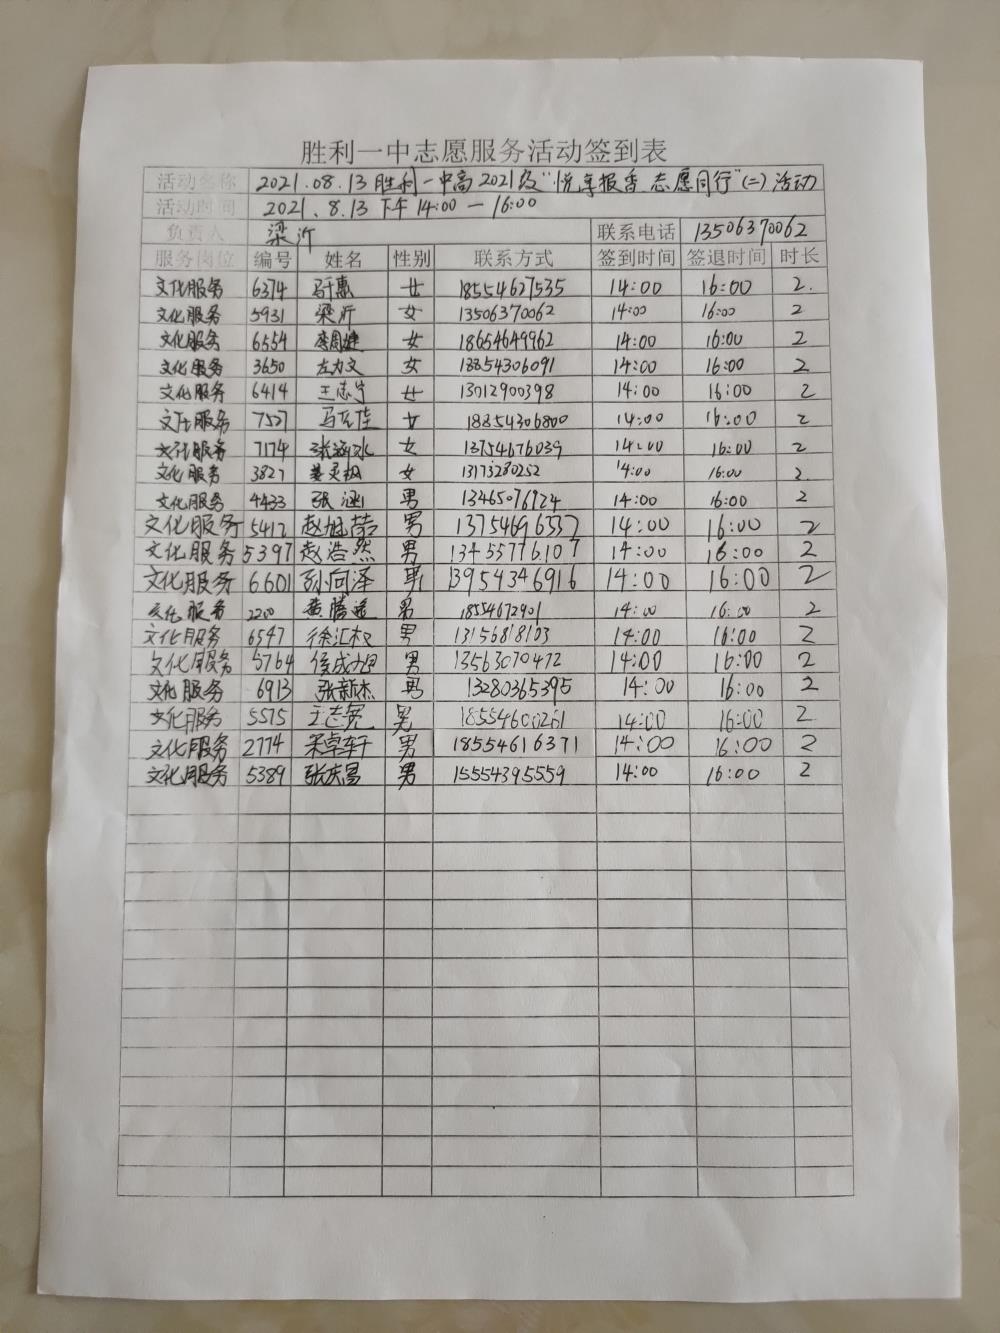 胜利一中志愿服务活动签到表
活动名称 2021.08.13胜利一中高2021级“悦享报香 志愿同行”(二)活动
活动时间 2021.8.13下午14:00—16:00
负责人 梁沂 联系电话 13506370062
服务岗位 编号 姓名 性别 联系方式 签到时间 签退时间 时长
文化服务 6374 女 18554627535 14:00 16:00 2.
文化服务 5931 梁沂 女 13506370062 14:00 16:00 2
文化服务 6554 女 18654649962 14:00 16:00 2
文化服务 3650 左力文 女 13854306091 14:00 16:00 2
文化服务 6414 王志宇 女 13012900398 14:00 16:00 2
文化服务 7527 女 18854306800 14:00 16:00 2
文化服务 7174 张涵冰 女 13754676039 14:00 16:00 2
文化服务 3827 女 13173280252 14:00 16:00 2.
文化服务 4433 张涵 男 13465076724 14:00 16:00 2
文化服务 5412 赵旭荣 男 13754696337 14:00 16:00 2
文化服务 5397 赵浩然 男 13455776107 14:00 16:00 2
文化服务 6601 孙向泽 男 13954346916 14:00 16:00 2
文化服务 2200 黄腾遥 男 18554672901 14:00 16:00 2
文化服务 6547 徐汇权 男 13156818103 14:00 16:00 2
文化服务 5764 侯成旭 男 13563070472 14:00 16:00 2
文化服务 6913 张新杰 男 13280365395 14:00 16:00 2
文化服务 5575 王志宽 男 18554600261 14:00 16:00 2
文化服务 2774 宋卓轩 男 18554616371 14:00 16:00 2
文化服务 5389 张庆昌 男 15554395559 14:00 16:00 2